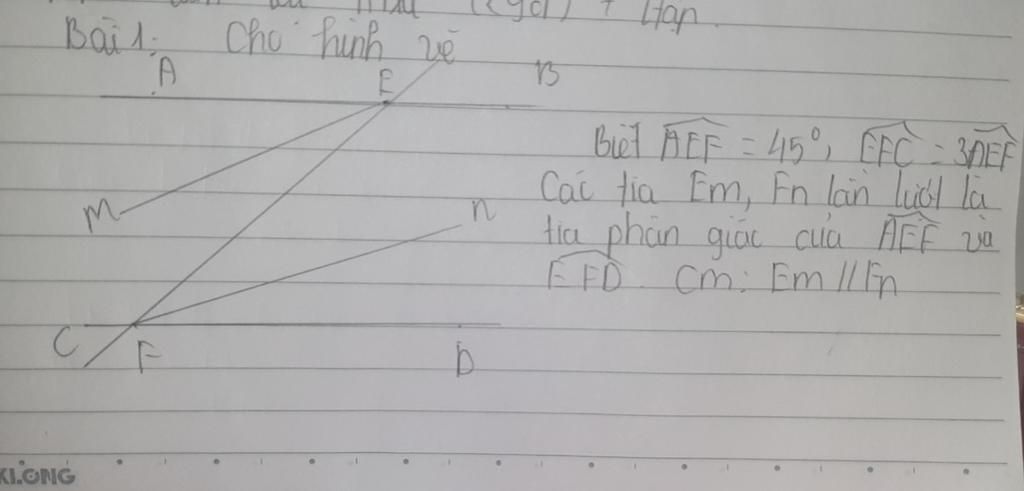 + Hạn.
Bài 1: Cho hình vẽ
A E B
Biết AEF = 45°, EFC = 3AEF
Các tia Em, Fn lần lượt là
m n
tia phân giác của AEF và
EFD. Cm: Em // Fn
C F D
KLONG